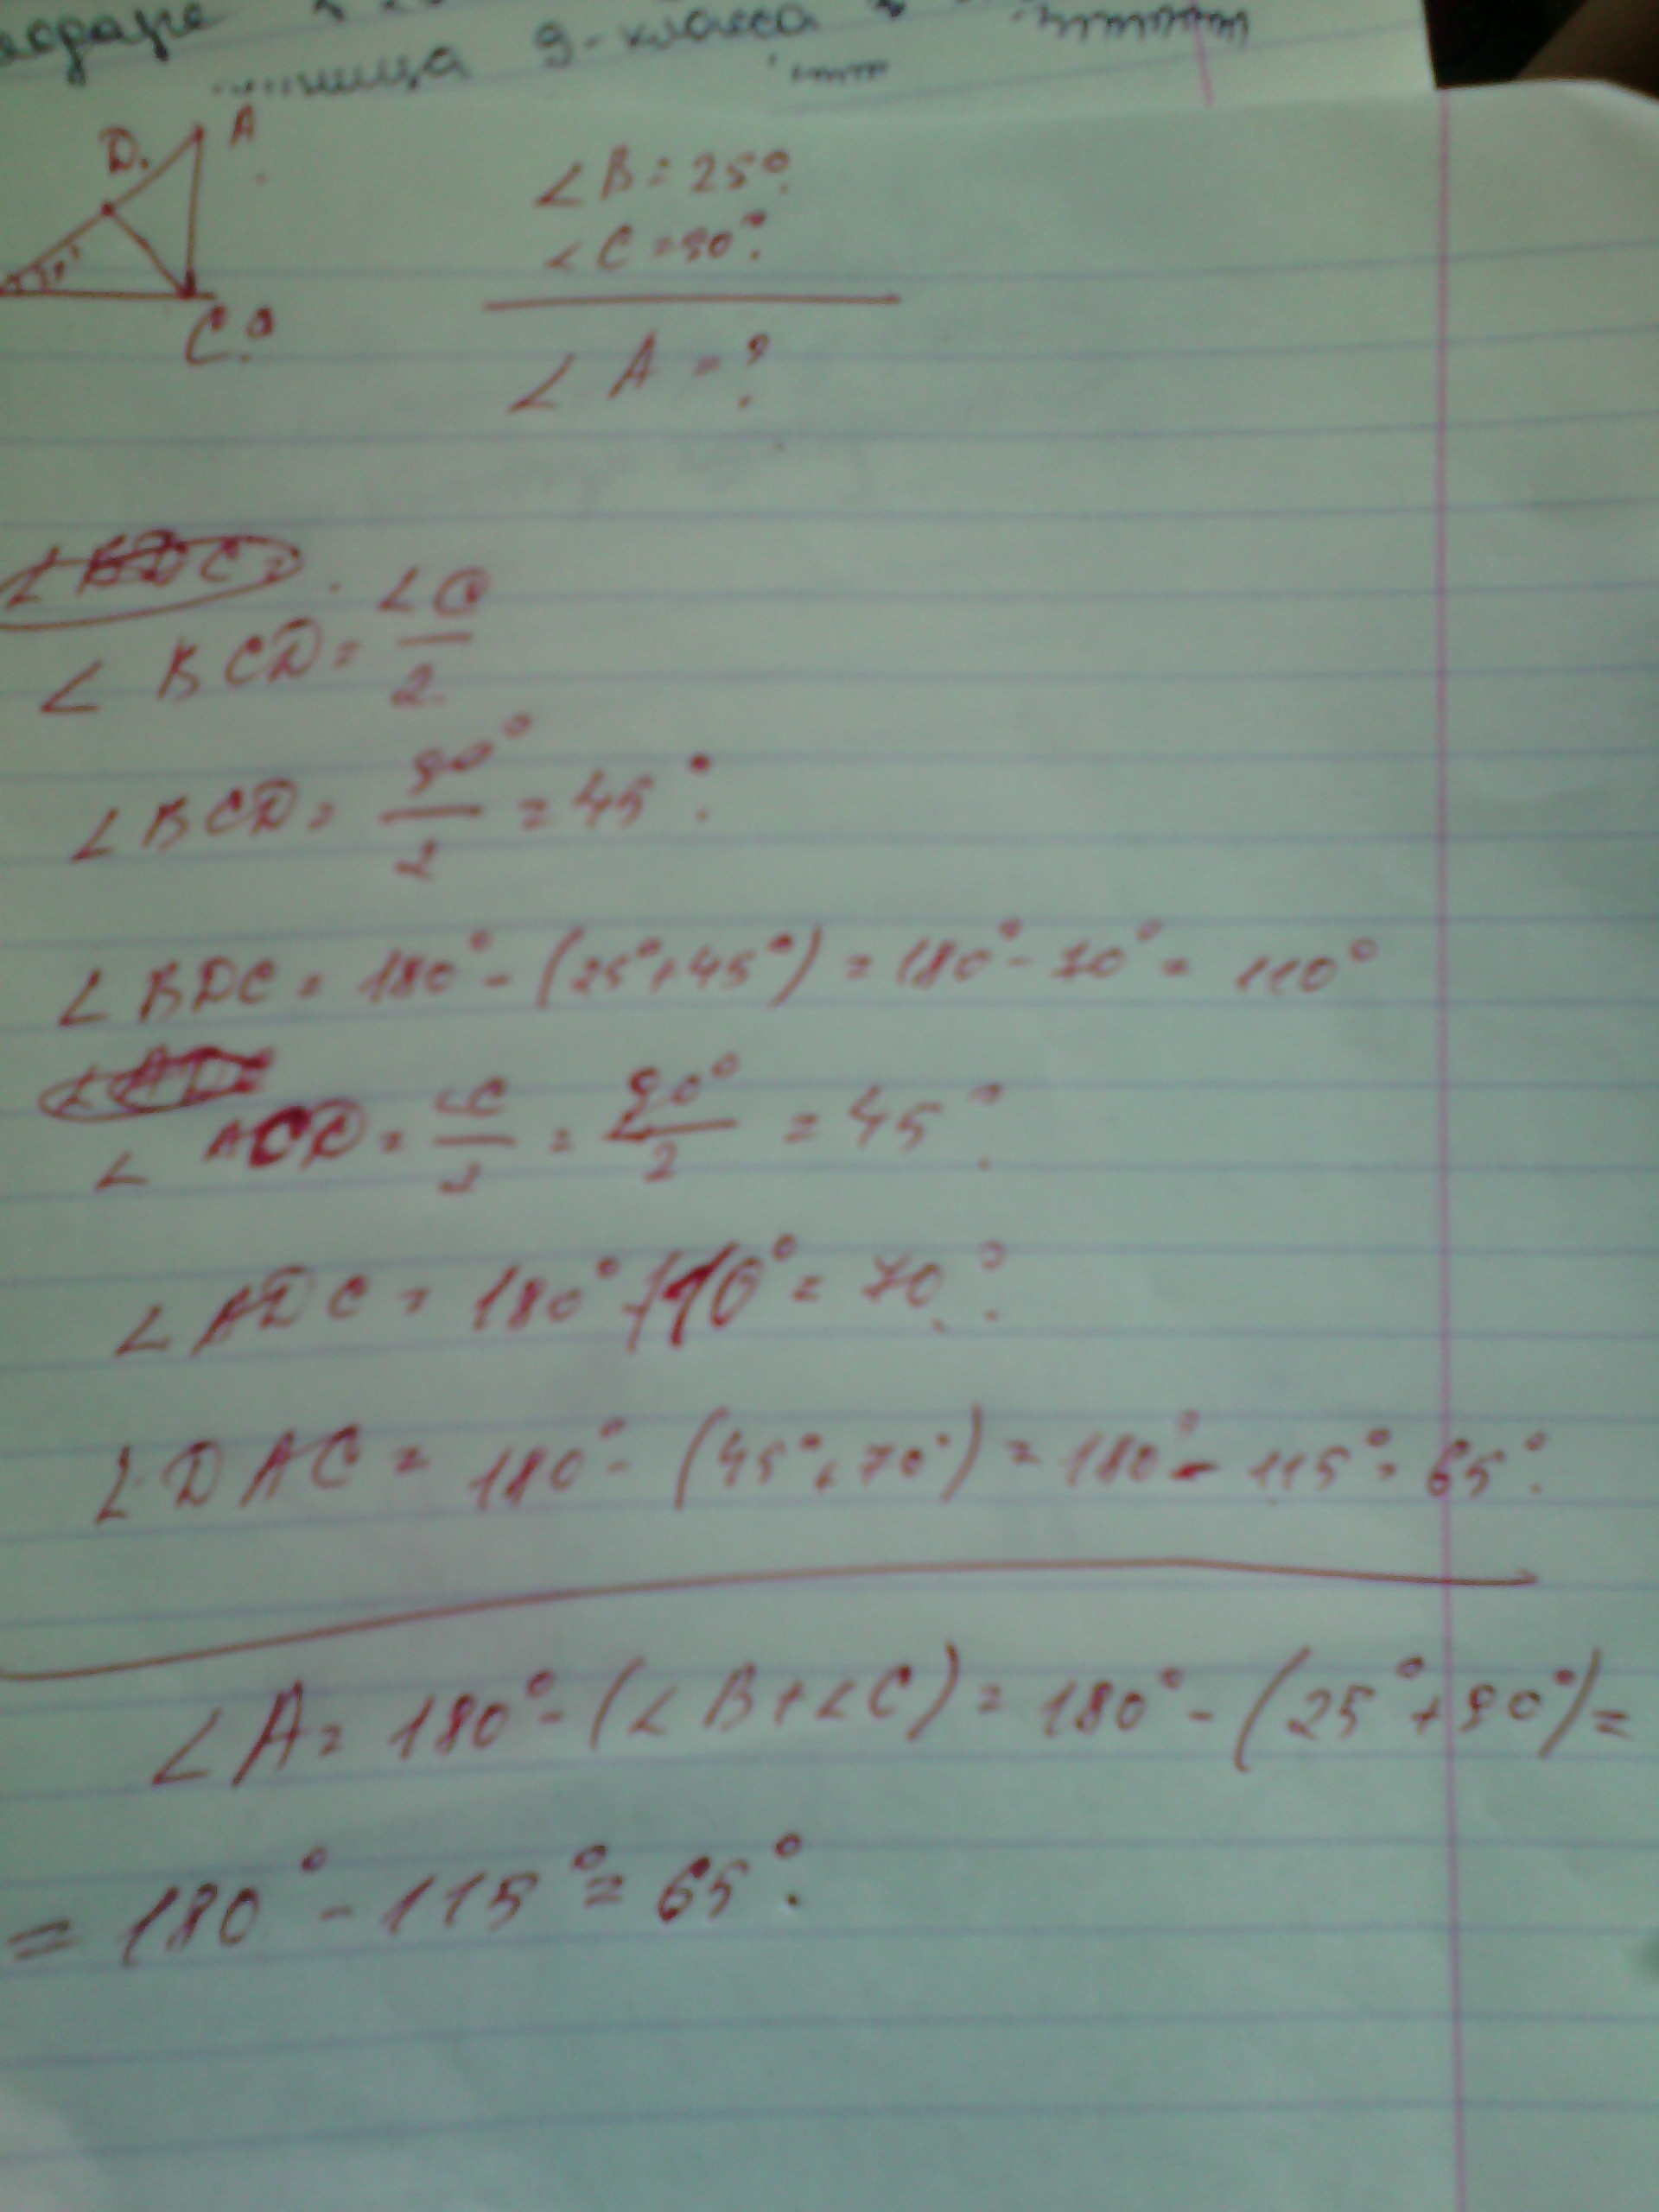 9-класса
D. A
∠B = 25°.
∠C = 90°.
C.
∠A = ?
∠BDC =
∠BCD = ∠C/2
∠BCD = 90°/2 = 45°.
∠BDC = 180° - (25° + 45°) = 180° - 70° = 110°
∠ACD = ∠C/2 = 90°/2 = 45°.
∠ADC = 180° - 110° = 70°.
∠DAC = 180° - (45° + 70°) = 180° - 115° = 65°.
∠A = 180° - (∠B + ∠C) = 180° - (25° + 90°) =
= 180° - 115° = 65°.